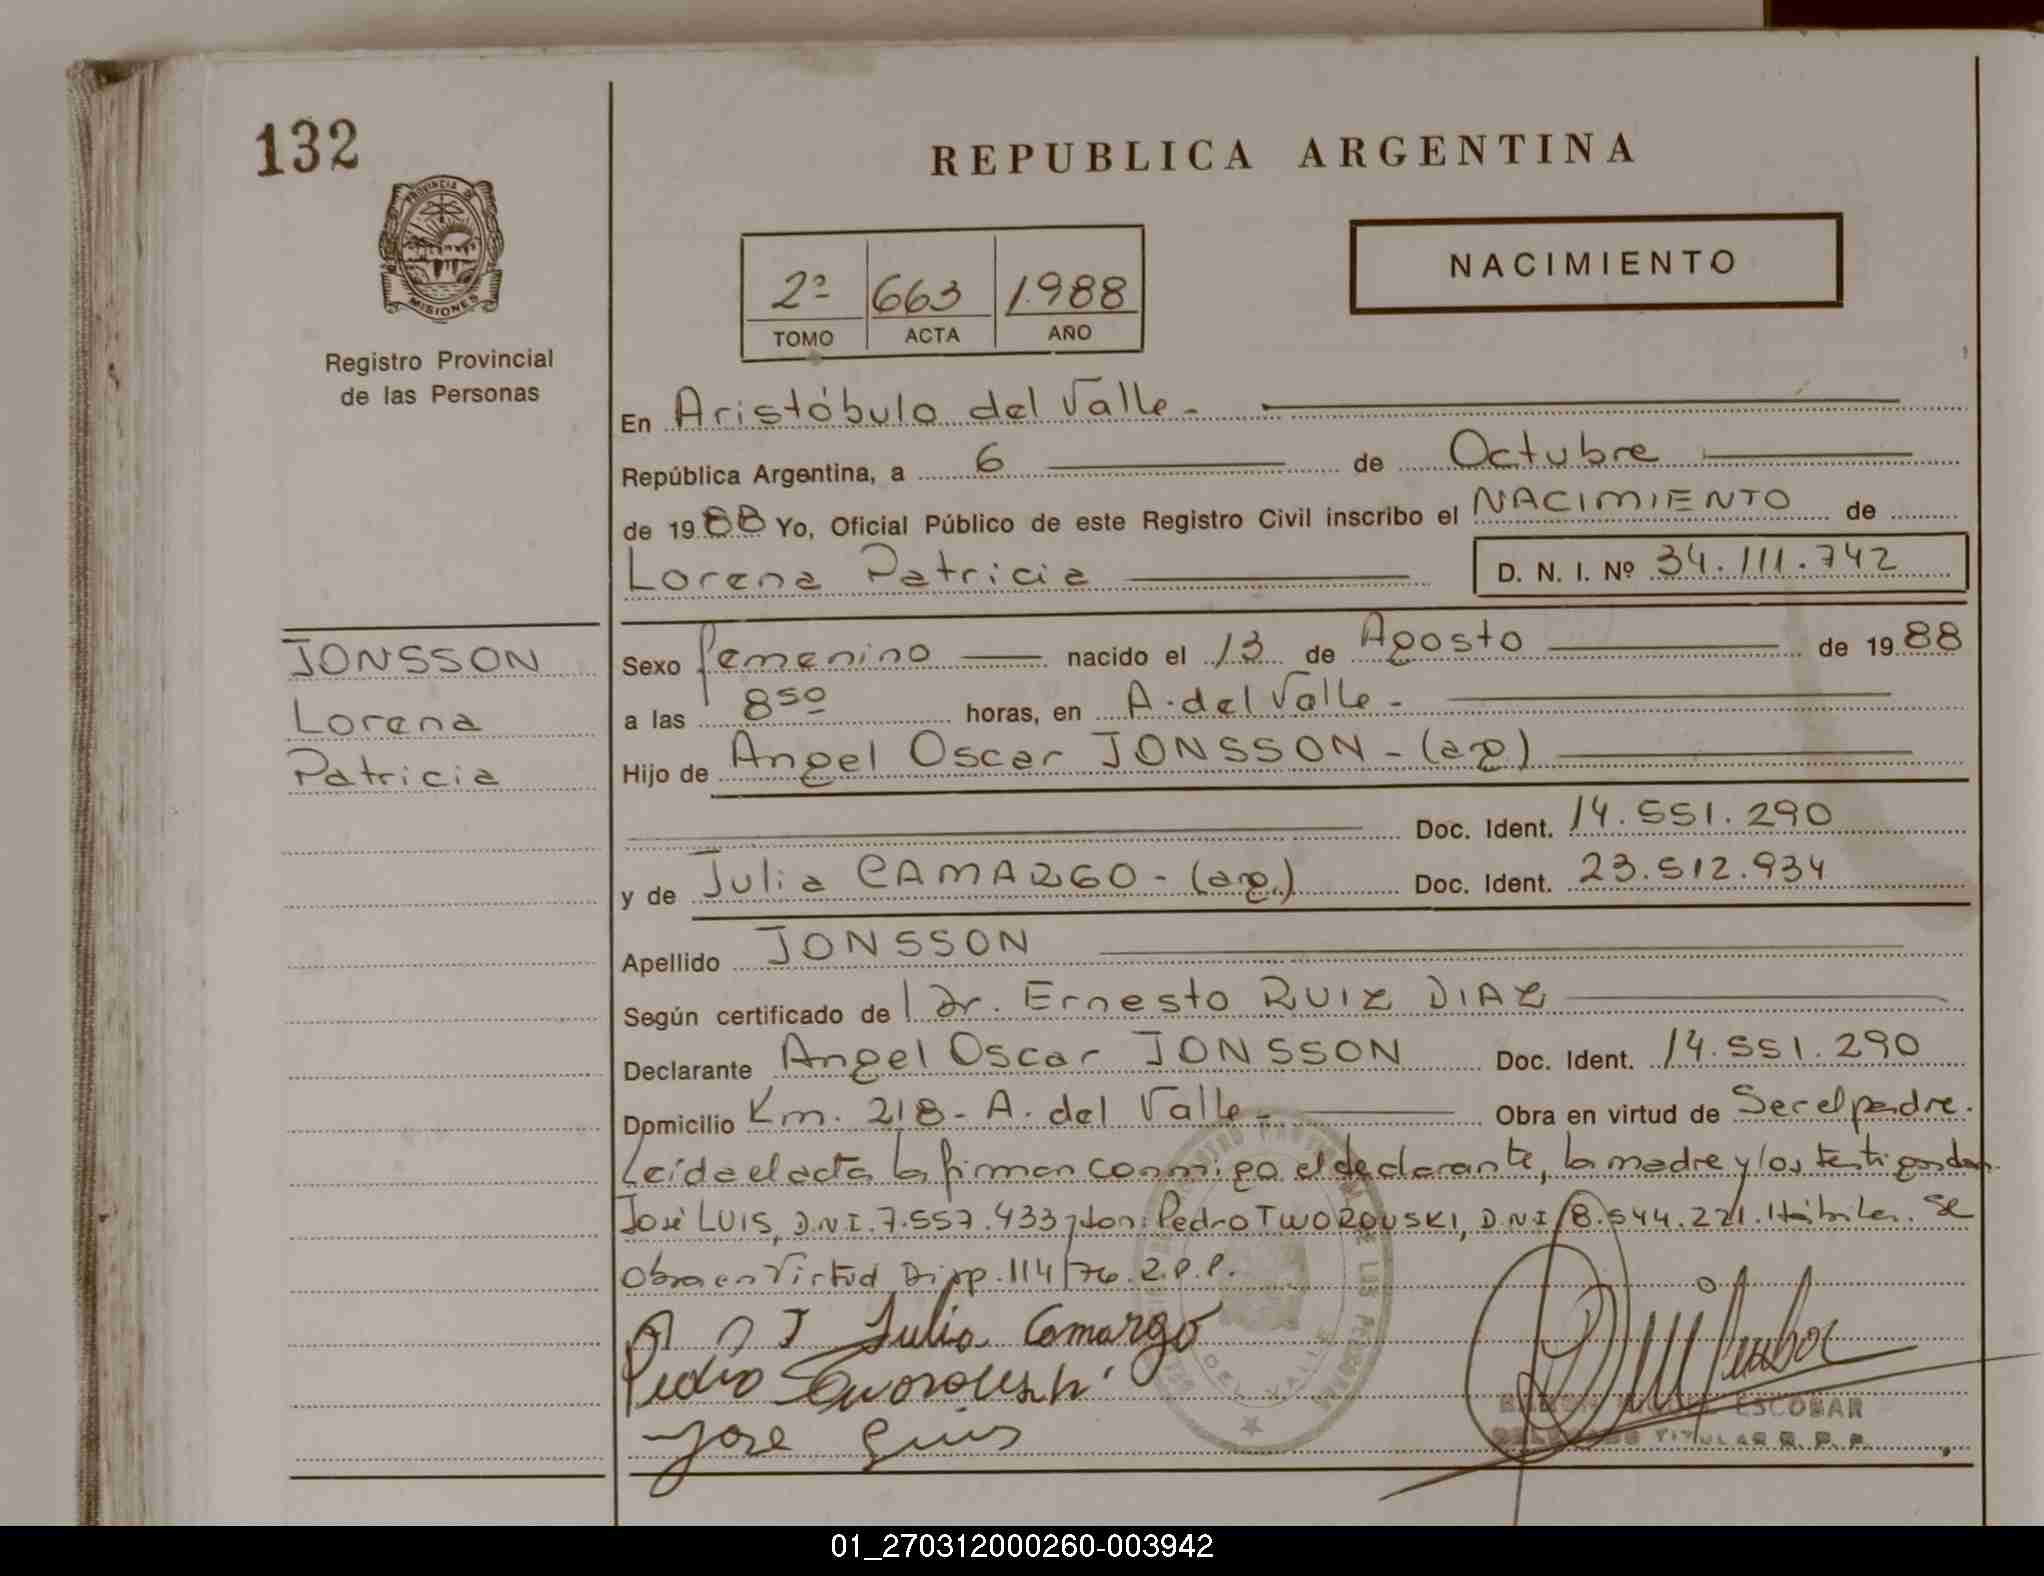 132
REPUBLICA ARGENTINA
PROVINCIA DE
MISIONES
Registro Provincial
de las Personas
2º 663 1.988
TOMO ACTA AÑO
NACIMIENTO
En Aristóbulo del Valle.-
República Argentina, a 6 de Octubre
de 1988 Yo, Oficial Público de este Registro Civil inscribo el NACIMIENTO de
Lorena Patricia
D. N. I. Nº 34.111.742
JONSSON
Lorena
Patricia
Sexo femenino nacido el 13 de Agosto de 1988
a las 8 50 horas, en A. del Valle.-
Hijo de Angel Oscar JONSSON - (arg)
Doc. Ident. 14.551.290
y de Julia CAMARGO - (arg.) Doc. Ident. 23.512.934
Apellido JONSSON
Según certificado de Dr. Ernesto RUIZ DIAZ
Declarante Angel Oscar JONSSON Doc. Ident. 14.551.290
Domicilio Km. 218 - A. del Valle.- Obra en virtud de Ser el padre.
Leída el acta la firman conmigo el declarante, la madre y los testigos don
José LUIS, D.N.I. 7.557.433 y don: Pedro TWOROUSKI, D.N.I 8.544.221. Hábiles. Se
Obra en Virtud Disp. 114/76. R.P.P.
A O J Julia Camargo
Pedro
Jose Luis
ESCOBAR
TITULAR R. P. P.
01_270312000260-003942